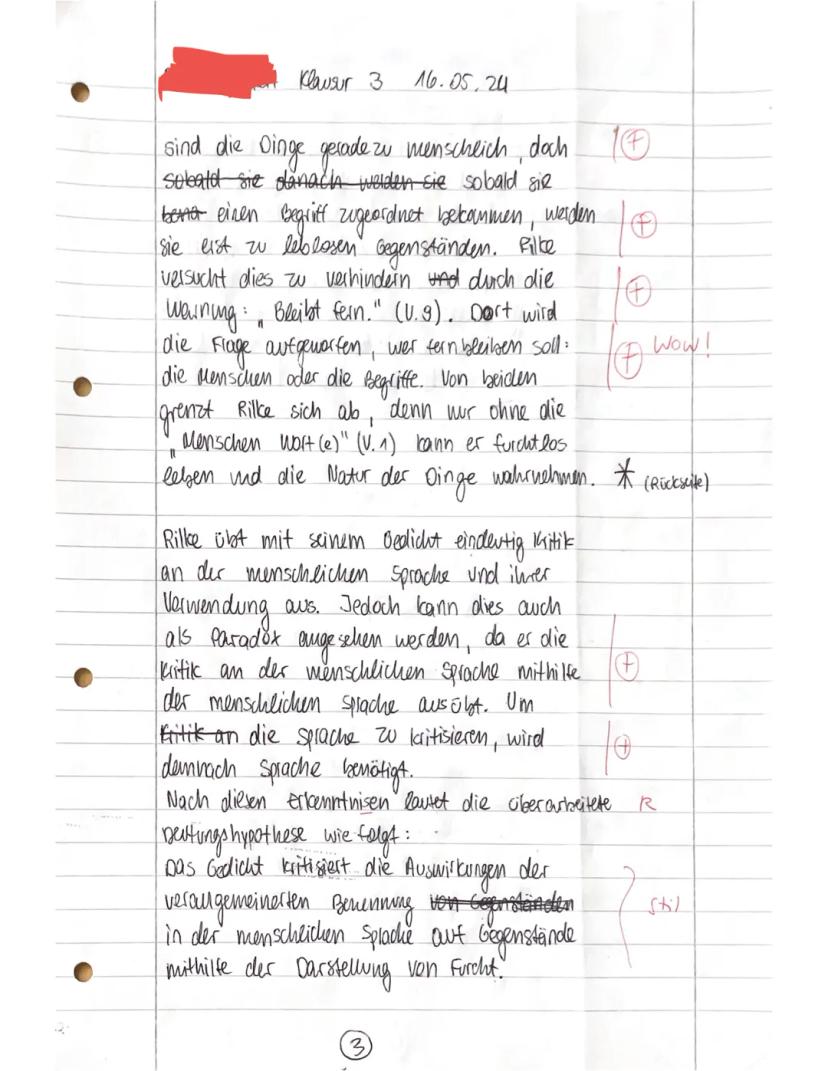 Klausur 3 16.05.24
sind die Dinge geradezu menschlich, doch
sobald sie danach werden sie sobald sie
einen Begriff zugeordnet bekommen, werden
sie erst zu leblosen Gegenständen. Rilke
versucht dies zu verhindern und durch die
Warnung: „Bleibt fern." (V.9). Dort wird
die Frage aufgeworfen, wer fernbleiben soll:
die Menschen oder die Begriffe. Von beiden
grenzt Rilke sich ab, denn nur ohne die
„Menschen Wort(e)" (V.1) kann er furchtlos
leben und die Natur der Dinge wahrnehmen. * (Rückseite)
Rilke übt mit seinem Gedicht eindeutig Kritik
an der menschlichen Sprache und ihrer
Verwendung aus. Jedoch kann dies auch
als Paradox angesehen werden, da er die
Kritik an der menschlichen Sprache mithilfe
der menschlichen Sprache ausübt. Um
Kritik an die Sprache zu kritisieren, wird
demnach Sprache benötigt.
Nach diesen Erkenntnisen lautet die überarbeitete
Deutungshypothese wie folgt:
Das Gedicht kritisiert die Auswirkungen der
verallgemeinerten Benennung von Gegenständen
in der menschlichen Sprache auf Gegenstände
mithilfe der Darstellung von Furcht.
3
+
+
+
+ Wow!
+
+
R
Stil